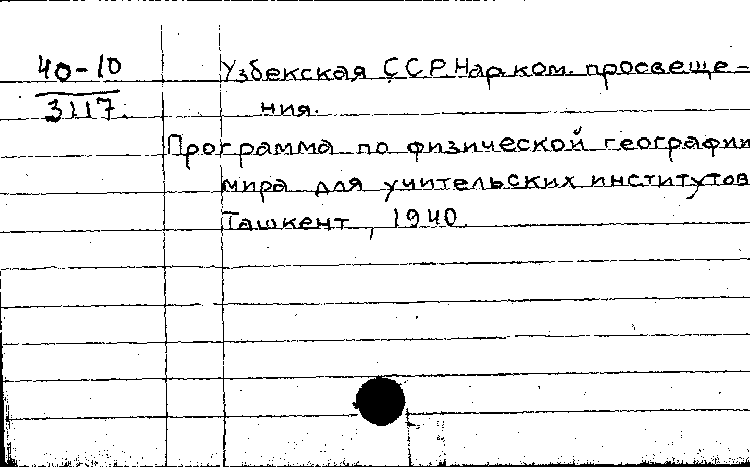 40-10
3117.
Узбекская ССР. Нарком. просвеще-
ния.
Программа по физической географии
мира для учительских институтов
Ташкент, 1940